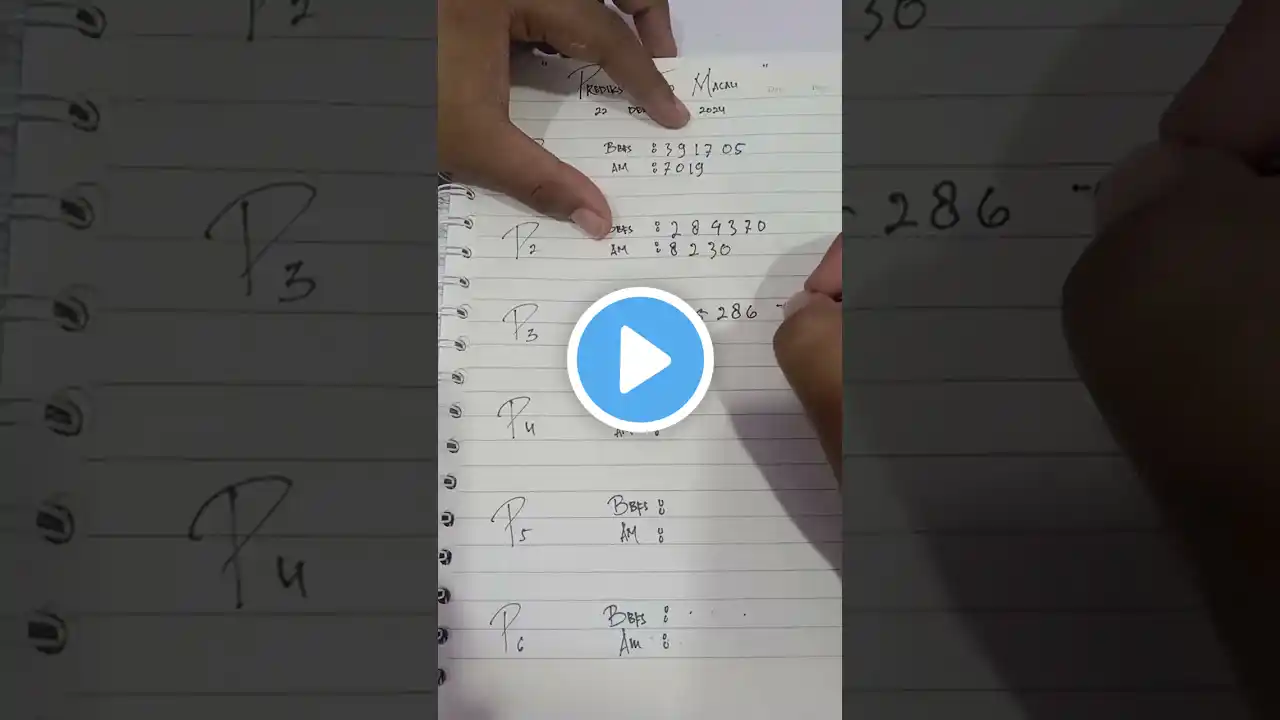 " Macau "
22 2024
BBFS : 391705
AM : 7019
P2 BBFS : 289370
AM : 8230
P3 286
P4
AM :
P5 BBFS :
AM :
P6 BBFS :
AM :